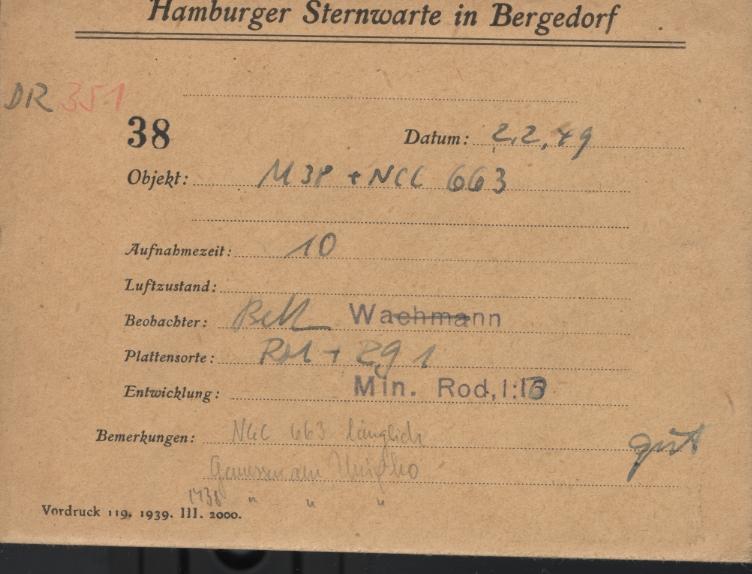 Hamburger Sternwarte in Bergedorf
DR 351
38 Datum: 2.2.49
Objekt: M 38 + NGC 663
Aufnahmezeit: 10
Luftzustand:
Beobachter: Wachmann
Plattensorte:
Entwicklung: Min. Rod, 1:15
Bemerkungen: NGC 663 länglich
gut
Gemessen am
M38 " " "
Vordruck 119. 1939. III. 2000.